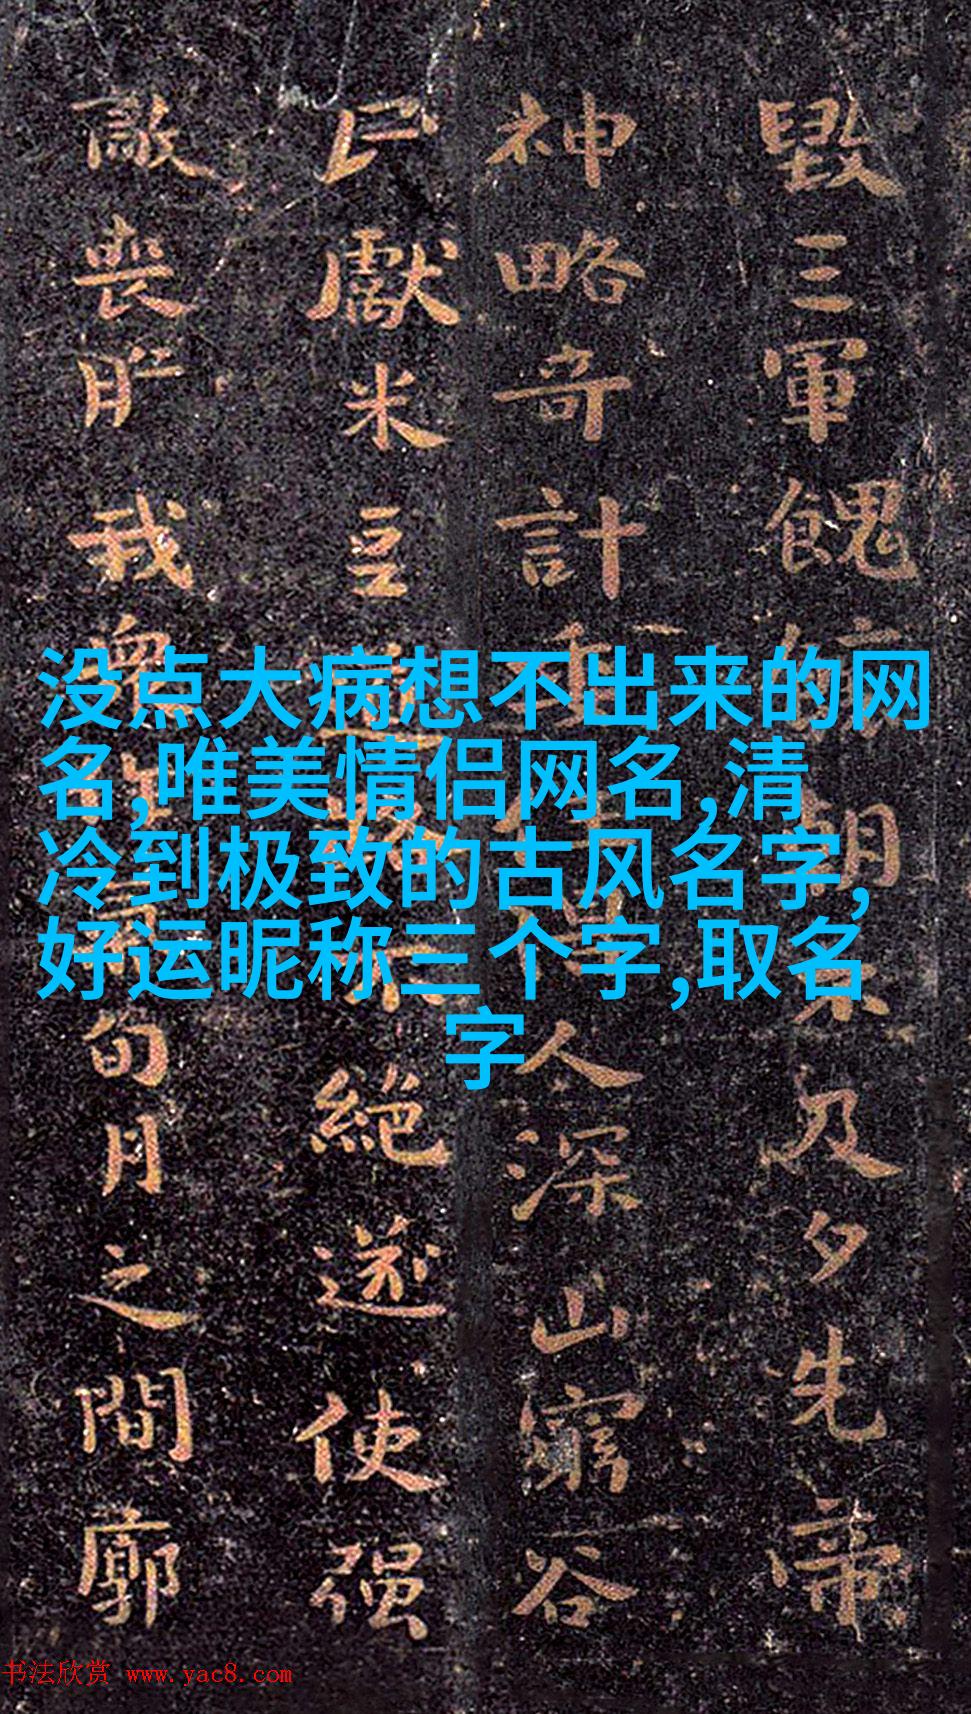 毀三軍餽餉朝不及夕先帝
神略奇計委任得人深山窮谷
民獻米豆道路不絕遂使强
敵喪膽我眾作氣旬月之間廓
没点大病想不出来的网
名,唯美情侣网名,清
冷到极致的古风名字,
好运昵称三个字,取名
字
书法欣赏 www.yac8.com